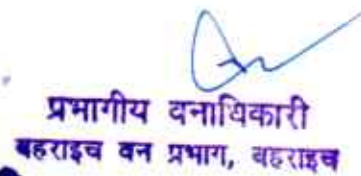 प्रभागीय वनाधिकारी
बहराइच वन प्रभाग, बहराइच